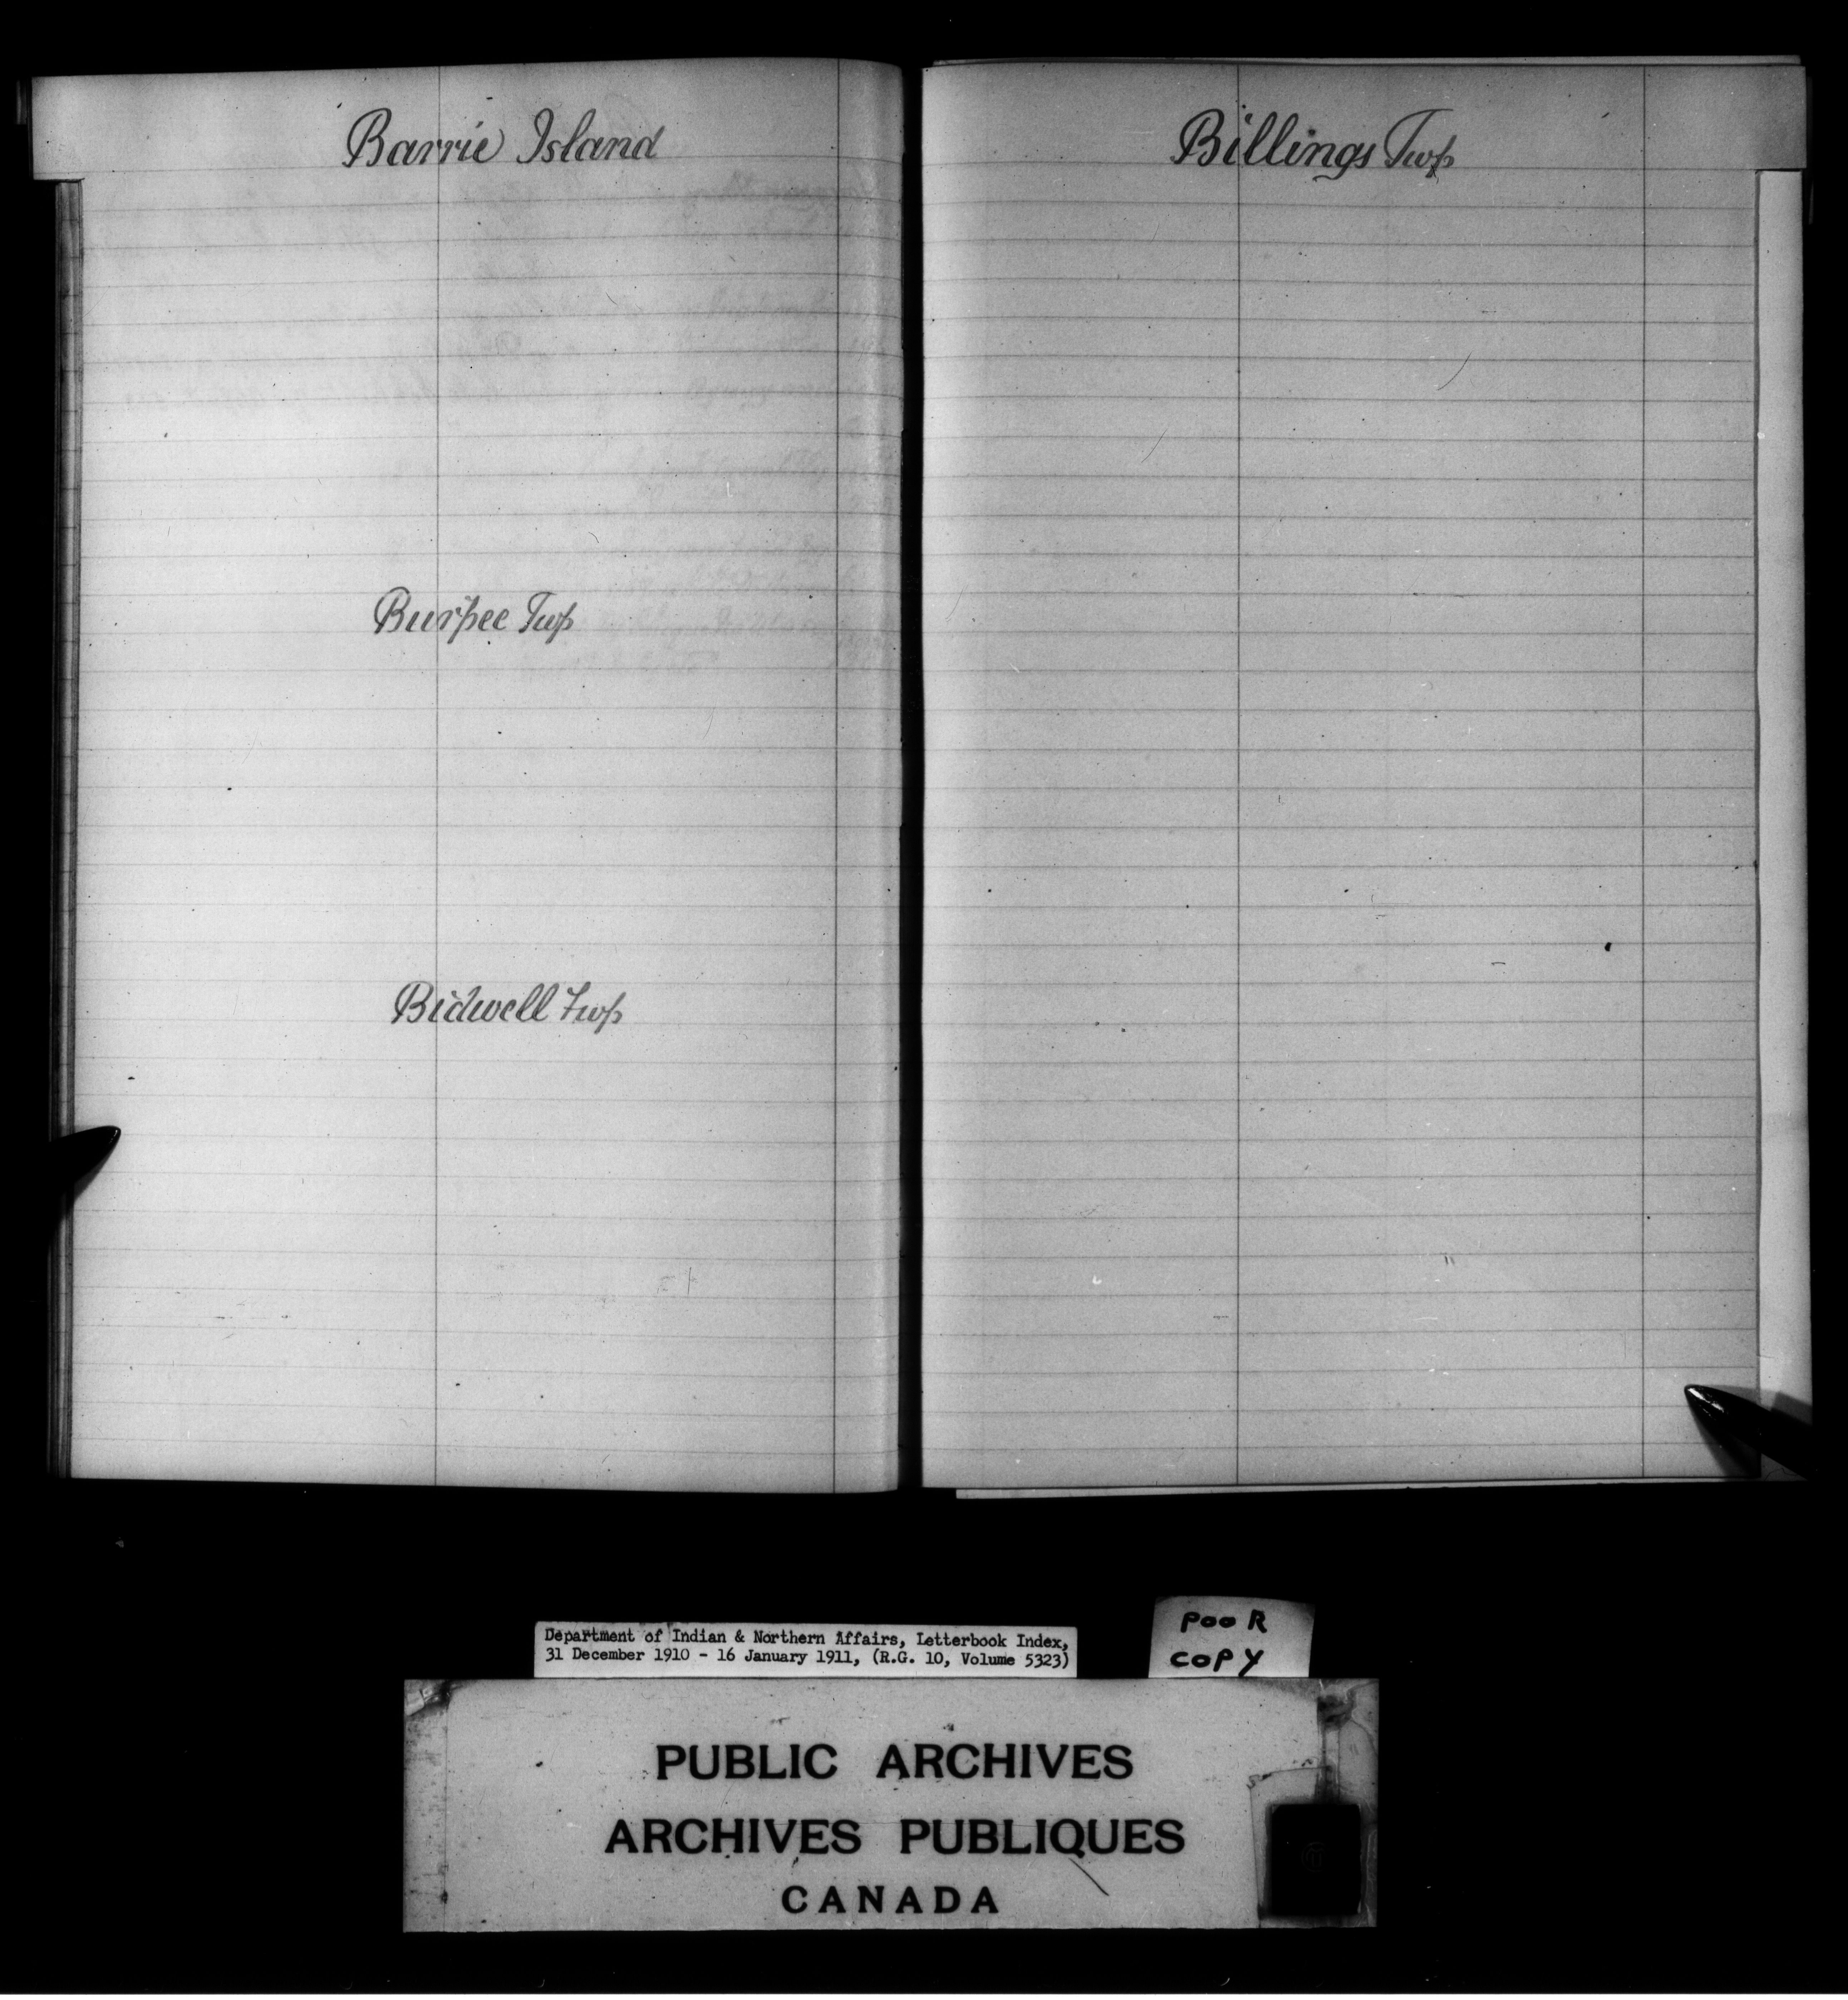 Barrie Island
Burpee Twp
Bidwell Twp
Billings Twp
Department of Indian & Northern Affairs, Letterbook Index,
31 December 1910 - 16 January 1911, (R.G. 10, Volume 5323)
POOR
COPY
PUBLIC ARCHIVES
ARCHIVES PUBLIQUES
CANADA